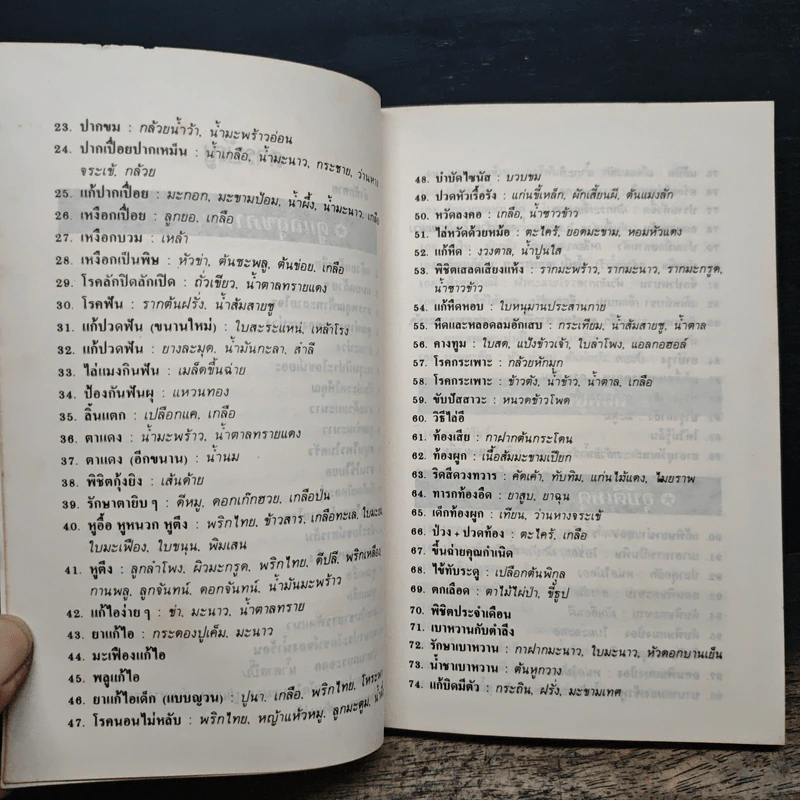 23. ปากขม : กล้วยน้ำว้า, น้ำมะพร้าวอ่อน
24. ปากเปื่อยปากเหม็น : น้ำเกลือ, น้ำมะนาว, กระชาย, ว่านหาง
จระเข้, กล้วย
25. แก้ปากเปื่อย : มะกอก, มะขามป้อม, น้ำผึ้ง, น้ำมะนาว, เกลือ
26. เหงือกเปื่อย : ลูกยอ, เกลือ
27. เหงือกบวม : เหล้า
28. เหงือกเป็นพิษ : หัวข่า, ต้นชะพลู, ต้นข่อย, เกลือ
29. โรคลักปิดลักเปิด : ถั่วเขียว, น้ำตาลทรายแดง
30. โรคฟัน : รากต้นฝรั่ง, น้ำส้มสายชู
31. แก้ปวดฟัน (ขนานใหม่) : ใบสะระแหน่, เหล้าโรง
32. แก้ปวดฟัน : ยางละมุด, น้ำมันกะลา, สำลี
33. ไล่แมงกินฟัน : เมล็ดขึ้นฉ่าย
34. ป้องกันฟันผุ : แหวนทอง
35. ลิ้นแตก : เปลือกแค, เกลือ
36. ตาแดง : น้ำมะพร้าว, น้ำตาลทรายแดง
37. ตาแดง (อีกขนาน) : น้ำนม
38. พิชิตกุ้งยิง : เส้นด้าย
39. รักษาตายิบ ๆ : ดีหมู, ดอกเก๊กฮวย, เกลือป่น
40. หูอื้อ หูหนวก หูตึง : พริกไทย, ข้าวสาร, เกลือทะเล,
ใบมะเฟือง, ใบขนุน, พิมเสน
41. หูตึง : ลูกลำโพง, ผิวมะกรูด, พริกไทย, ดีปลี, พริกเหลือง
กานพลู, ลูกจันทน์, ดอกจันทน์, น้ำมันมะพร้าว
42. แก้ไอง่าย ๆ : ข่า, มะนาว, น้ำตาลทราย
43. ยาแก้ไอ : กระดองปูเค็ม, มะนาว
44. มะเฟืองแก้ไอ
45. พลูแก้ไอ
46. ยาแก้ไอเด็ก (แบบญวน) : ปูนา, เกลือ, พริกไทย, โหระพา
47. โรคนอนไม่หลับ : พริกไทย, หญ้าแห้วหมู, ลูกมะตูม,
48. บำบัดไซนัส : บวบขม
49. ปวดหัวเรื้อรัง : แก่นขี้เหล็ก, ผักเสี้ยนผี, ต้นแมงลัก
50. หวัดลงคอ : เกลือ, น้ำซาวข้าว
51. ไล่หวัดด้วยหม้อ : ตะไคร้, ยอดมะขาม, หอมหัวแดง
52. แก้หืด : งวงตาล, น้ำปูนใส
53. พิชิตเสลดเสียงแห้ง : รากมะพร้าว, รากมะนาว, รากมะกรูด,
น้ำซาวข้าว
54. แก้หืดหอบ : ใบหนุมานประสานกาย
55. หืดและหลอดลมอักเสบ : กระเทียม, น้ำส้มสายชู, น้ำตาล
56. คางทูม : ใบสด, แป้งข้าวเจ้า, ใบลำโพง, แอลกอฮอล์
57. โรคกระเพาะ : กล้วยหักมุก
58. โรคกระเพาะ : ข้าวตัง, น้ำข้าว, น้ำตาล, เกลือ
59. ขับปัสสาวะ : หนวดข้าวโพด
60. วิธีไล่อี
61. ท้องเสีย : กาฝากต้นกระโดน
62. ท้องผูก : เนื้อส้มมะขามเปียก
63. ริดสีดวงทวาร : คัดเค้า, ทับทิม, แก่นไม้แดง, ไมยราพ
64. ทารกท้องอืด : ยาสูบ, ยาฉุน
65. เด็กท้องผูก : เทียน, ว่านหางจระเข้
66. ป่วง + ปวดท้อง : ตะไคร้, เกลือ
67. ขึ้นฉ่ายคุณกำเนิด
68. ไข้ทับระดู : เปลือกต้นพิกุล
69. ตกเลือด : ตาไม้ไผ่ป่า, ขี้ธูป
70. พิชิตประจำเดือน
71. เบาหวานกับตำลึง
72. รักษาเบาหวาน : กาฝากมะนาว, ใบมะนาว, หัวดอกบานเย็น
73. น้ำชาเบาหวาน : ต้นหูกวาง
74. แก้บิดมีตัว : กระถิน, ฝรั่ง, มะขามเทศ